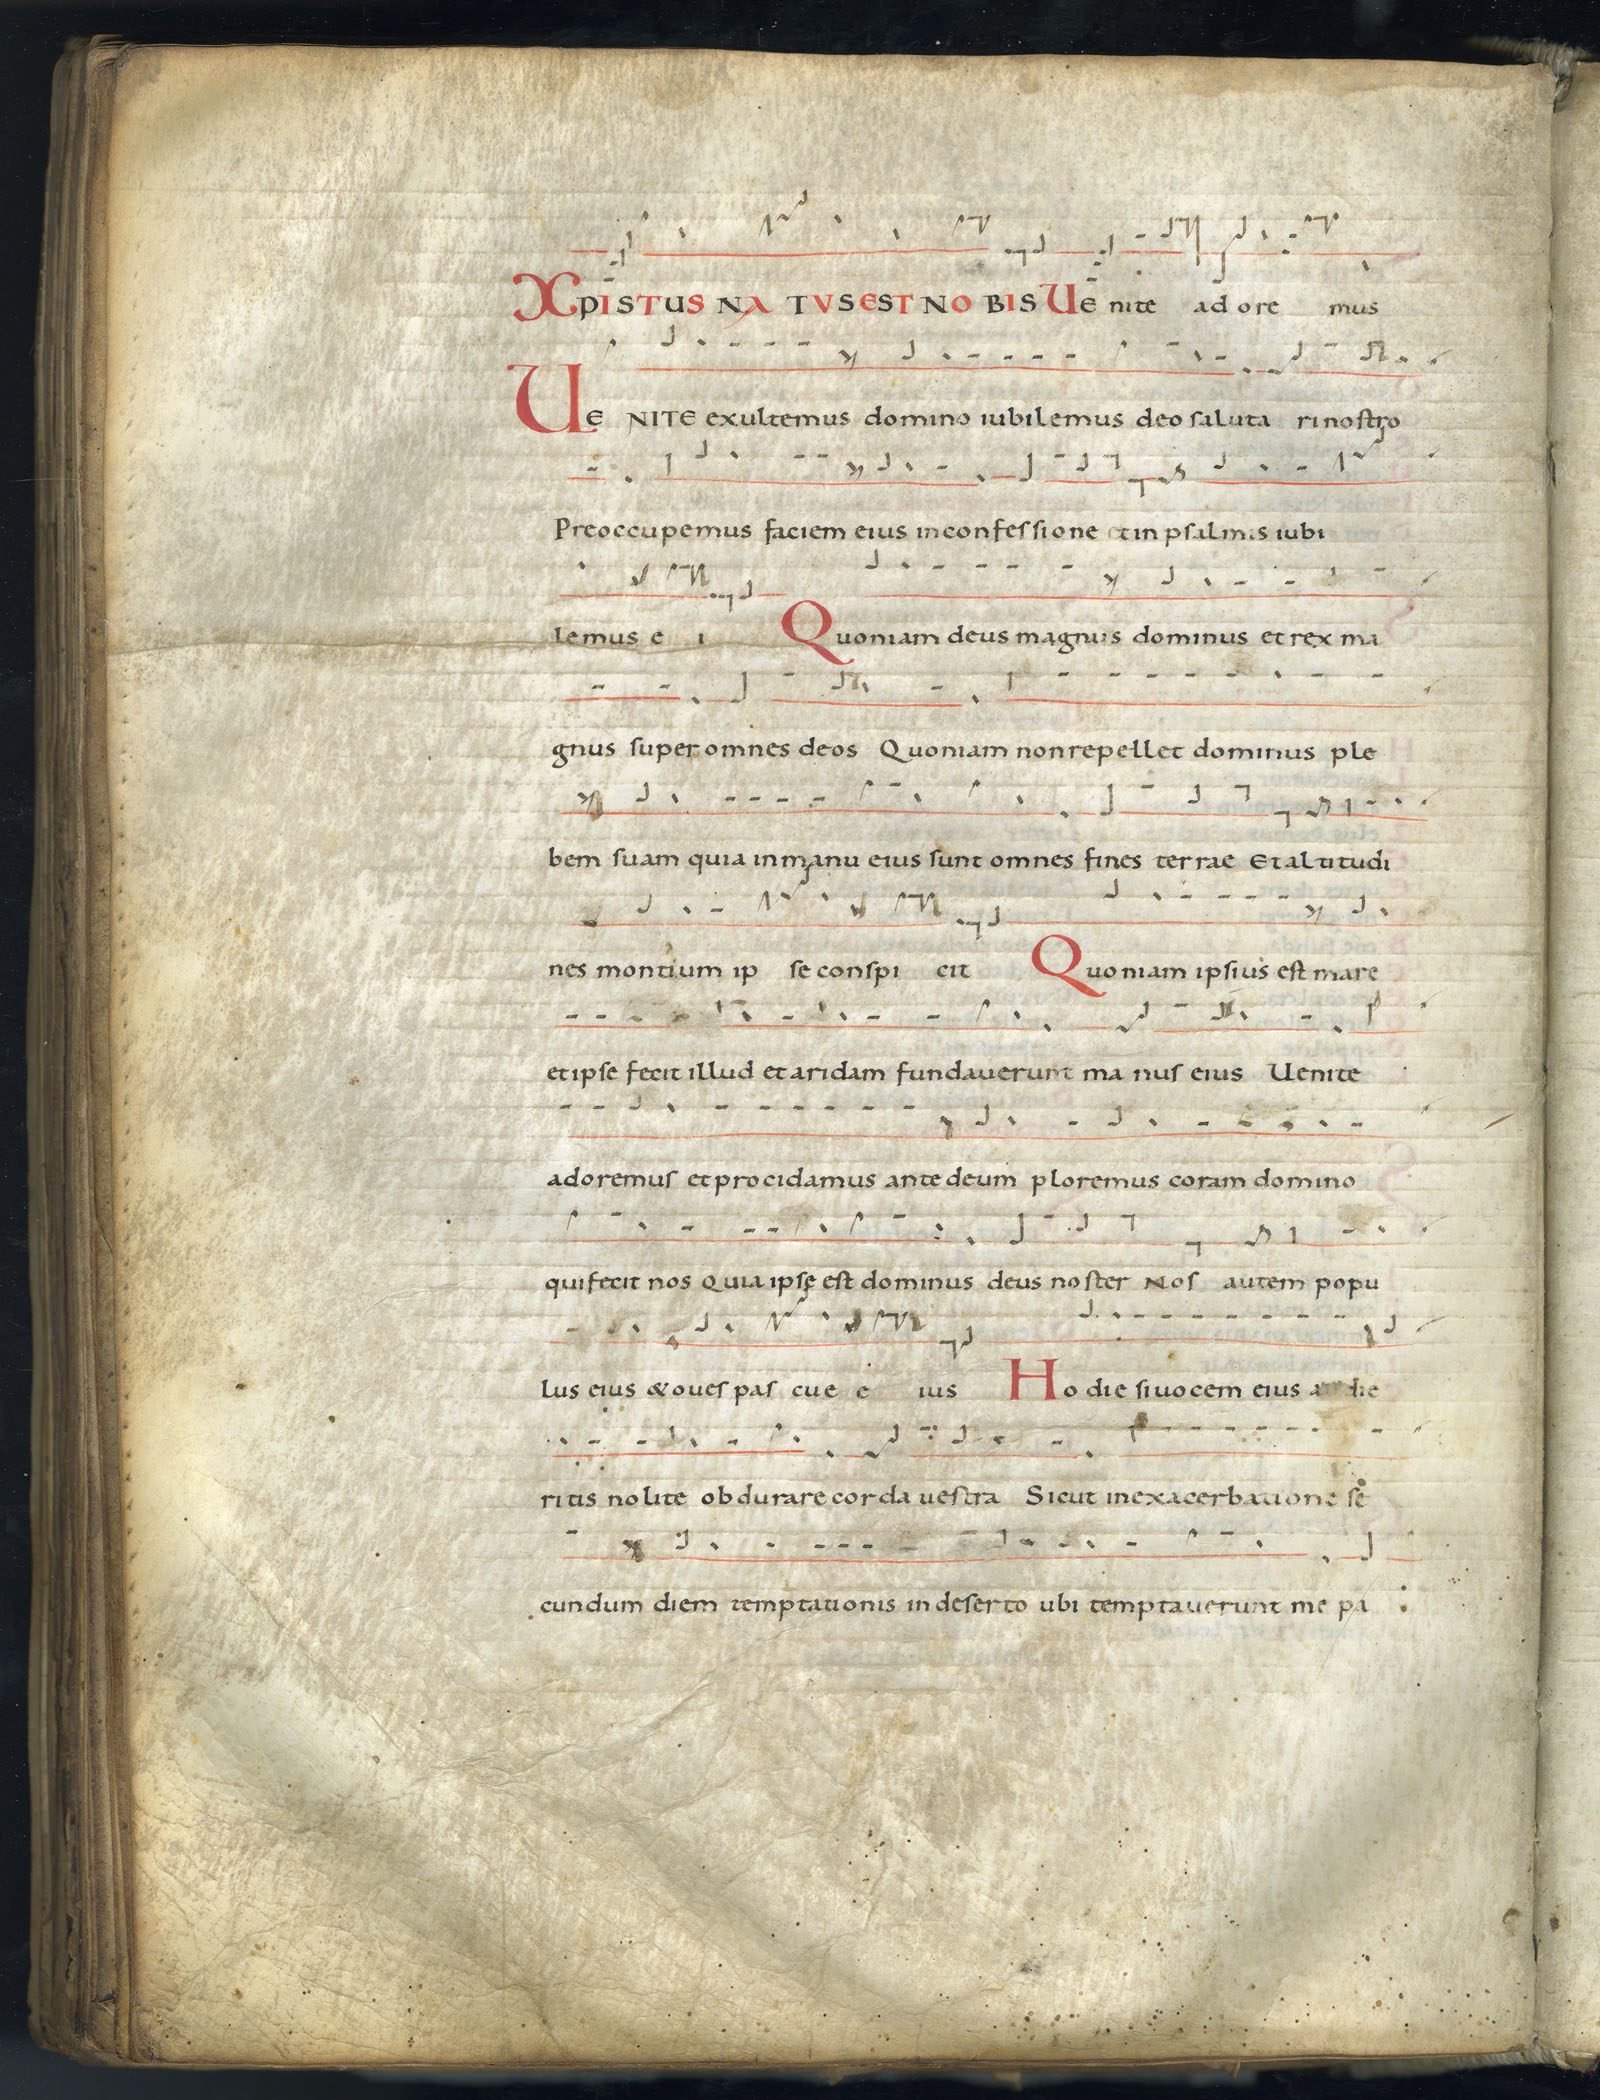 Xpistus na tus est no bis Ue nite ad ore mus
Ue nite exultemus domino iubilemus deo saluta ri nostro
Preoccupemus faciem eius in confessione et in psalmis iubi
lemus e i Quoniam deus magnus dominus et rex ma
gnus super omnes deos Quoniam non repellet dominus ple
bem suam quia in manu eius sunt omnes fines terrae Et altitudi
nes montium ip se conspi cit Quoniam ipsius est mare
et ipse fecit illud et aridam fundaverunt ma nus eius Uenite
adoremus et procidamus ante deum ploremus coram domino
qui fecit nos Quia ipse est dominus deus noster Nos autem popu
lus eius & oues pas cue e ius Ho die si uocem eius audie
ritis nolite obdurare corda uestra Sicut in exacerbatione se
cundum diem temptationis in deserto ubi temptauerunt me pa